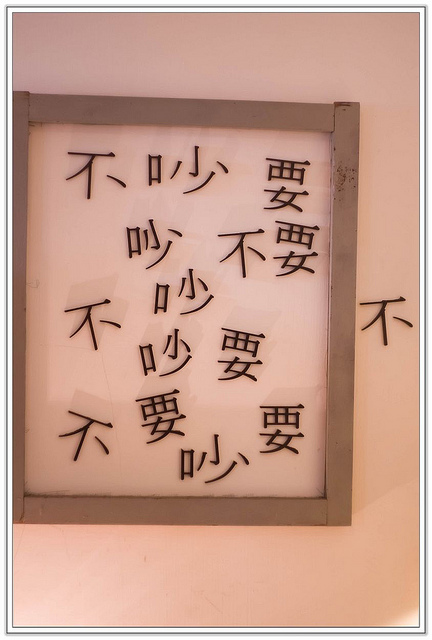 不吵要
吵不要
吵
不 不
吵要
要
不 要
吵